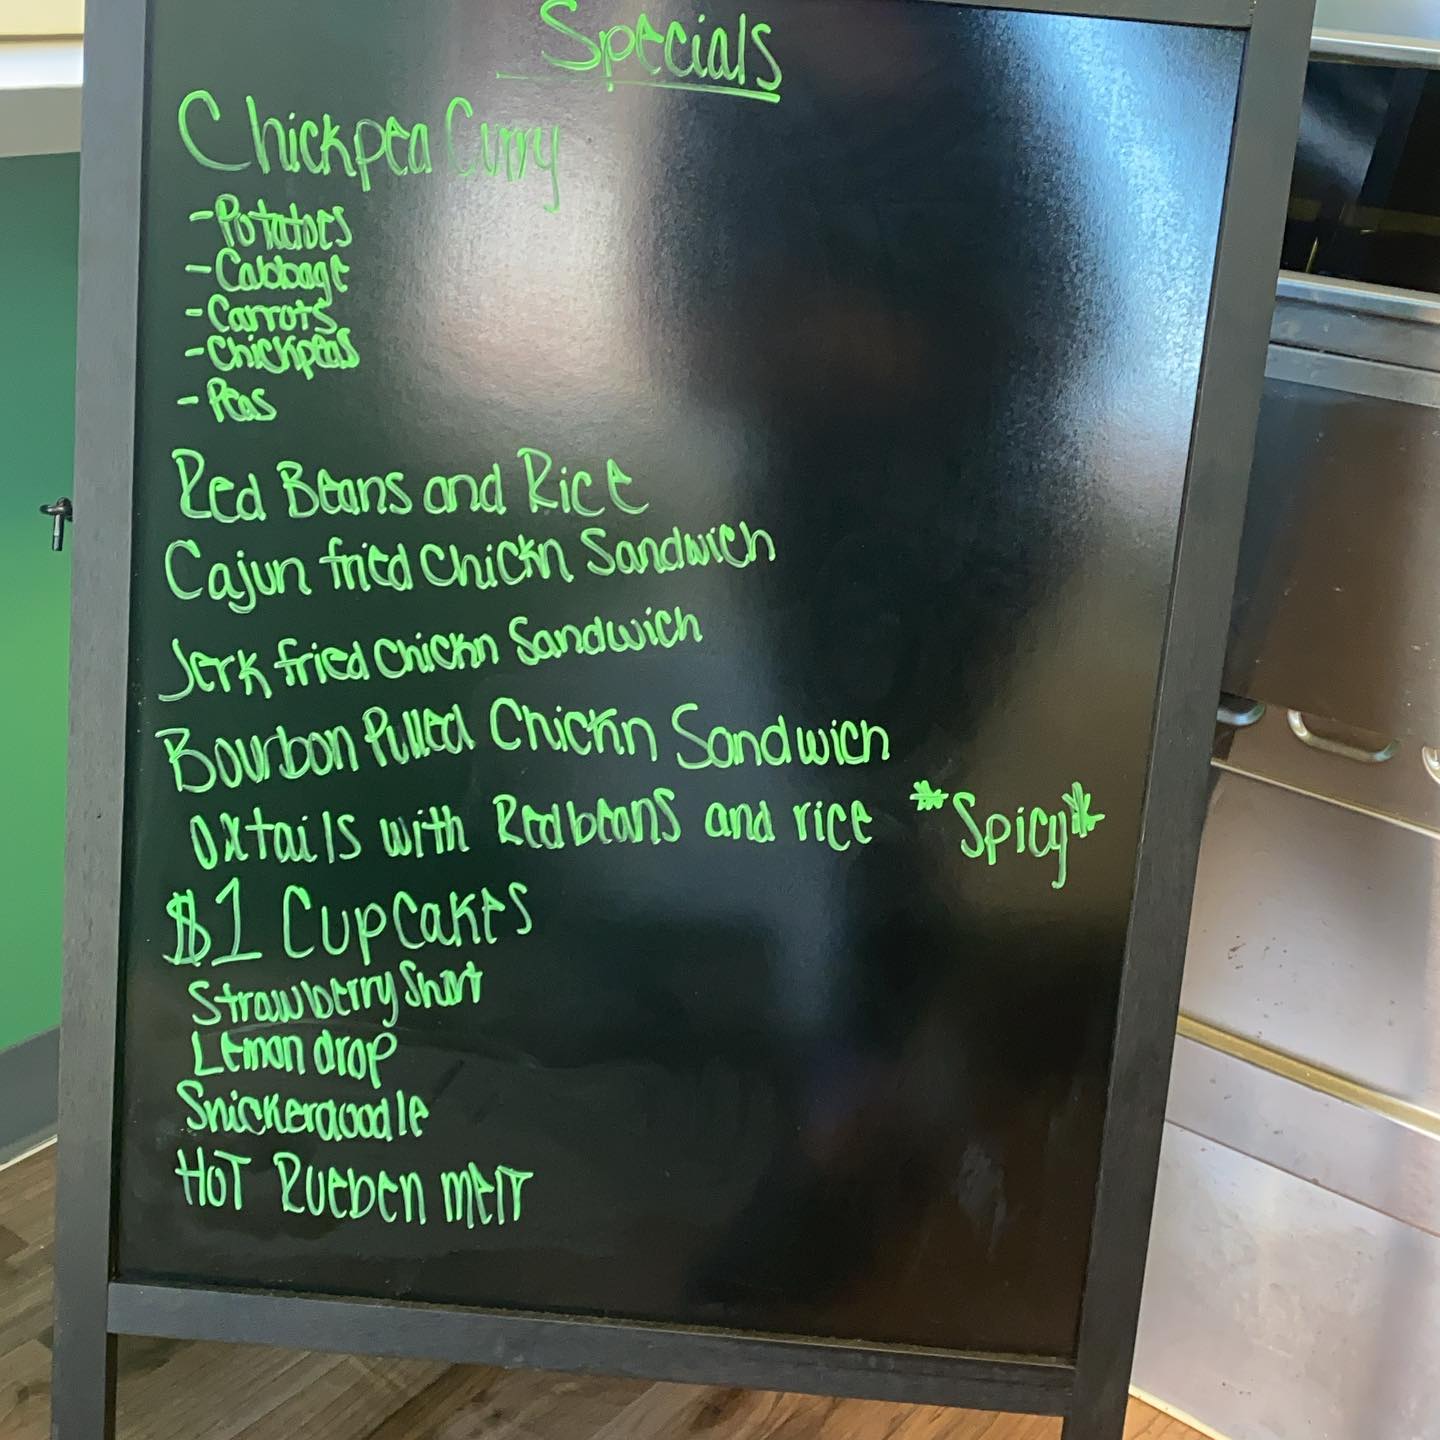 Specials
Chickpea Curry
-Potatoes
-Cabbage
-Carrots
-Chickpeas
-Peas
Red Beans and Rice
Cajun fried chickn Sandwich
Jerk fried chickn Sandwich
Bourbon Pulled Chickn Sandwich
Oxtails with Redbeans and rice *Spicy*
$1 Cupcakes
Strawberry Short
Lemon drop
Snickerdoodle
HOT Rueben melt